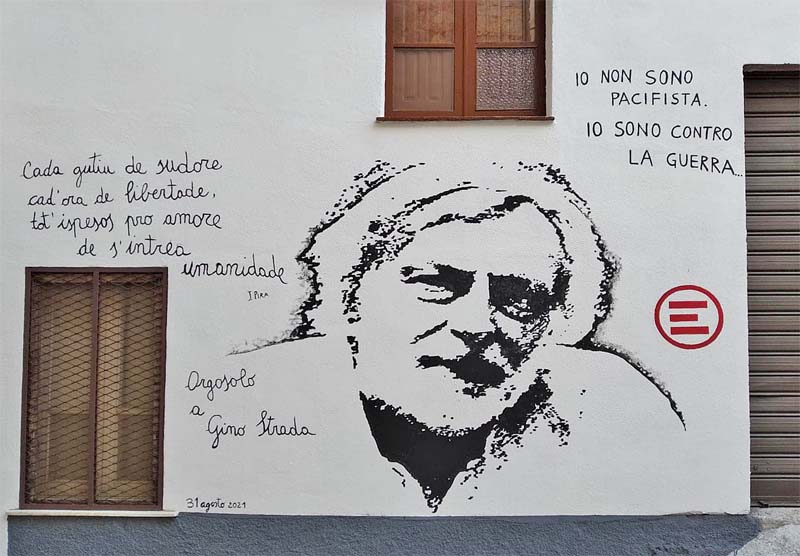 Cada gutiu de sudore
cad'ora de libertade,
tot'ispesos pro amore
de s'intrea
umanidade
I PIRA
IO NON SONO
PACIFISTA.
IO SONO CONTRO
LA GUERRA...
E
Orgosolo
a
Gino Strada
31 agosto 2021